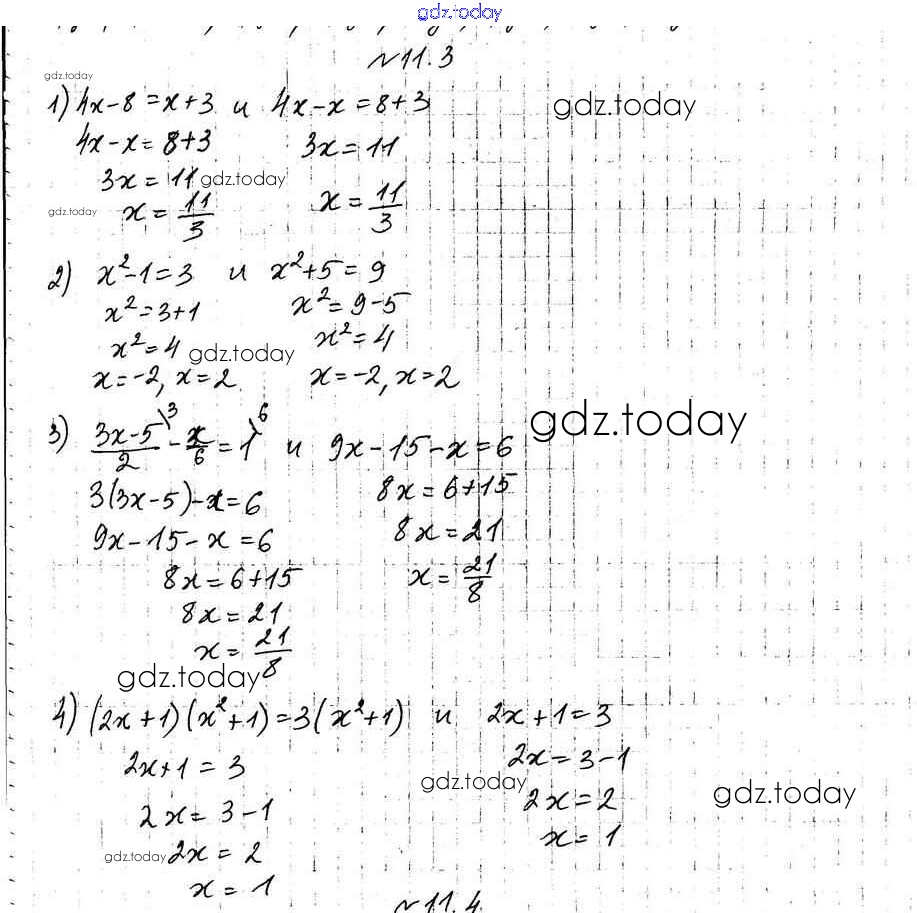 gdz.today
№11.3
gdz.today
1) 4x-8=x+3 и 4x-x=8+3 gdz.today
4x-x=8+3 3x=11
3x=11 gdz.today
gdz.today x=11/3 x=11/3
2) x²-1=3 и x²+5=9
x²=3+1 x²=9-5
x²=4 gdz.today x²=4
x=-2, x=2 x=-2, x=2
3) (3x-5)/2\3 - x/6 = 1\6 и 9x-15-x=6 gdz.today
3(3x-5)-x=6 8x=6+15
9x-15-x=6 8x=21
8x=6+15 x=21/8
8x=21
x=21/8
gdz.today
4) (2x+1)(x²+1)=3(x²+1) и 2x+1=3
2x+1=3 2x=3-1
gdz.today gdz.today
2x=3-1 2x=2
gdz.today 2x=2 x=1
x=1
№11.4